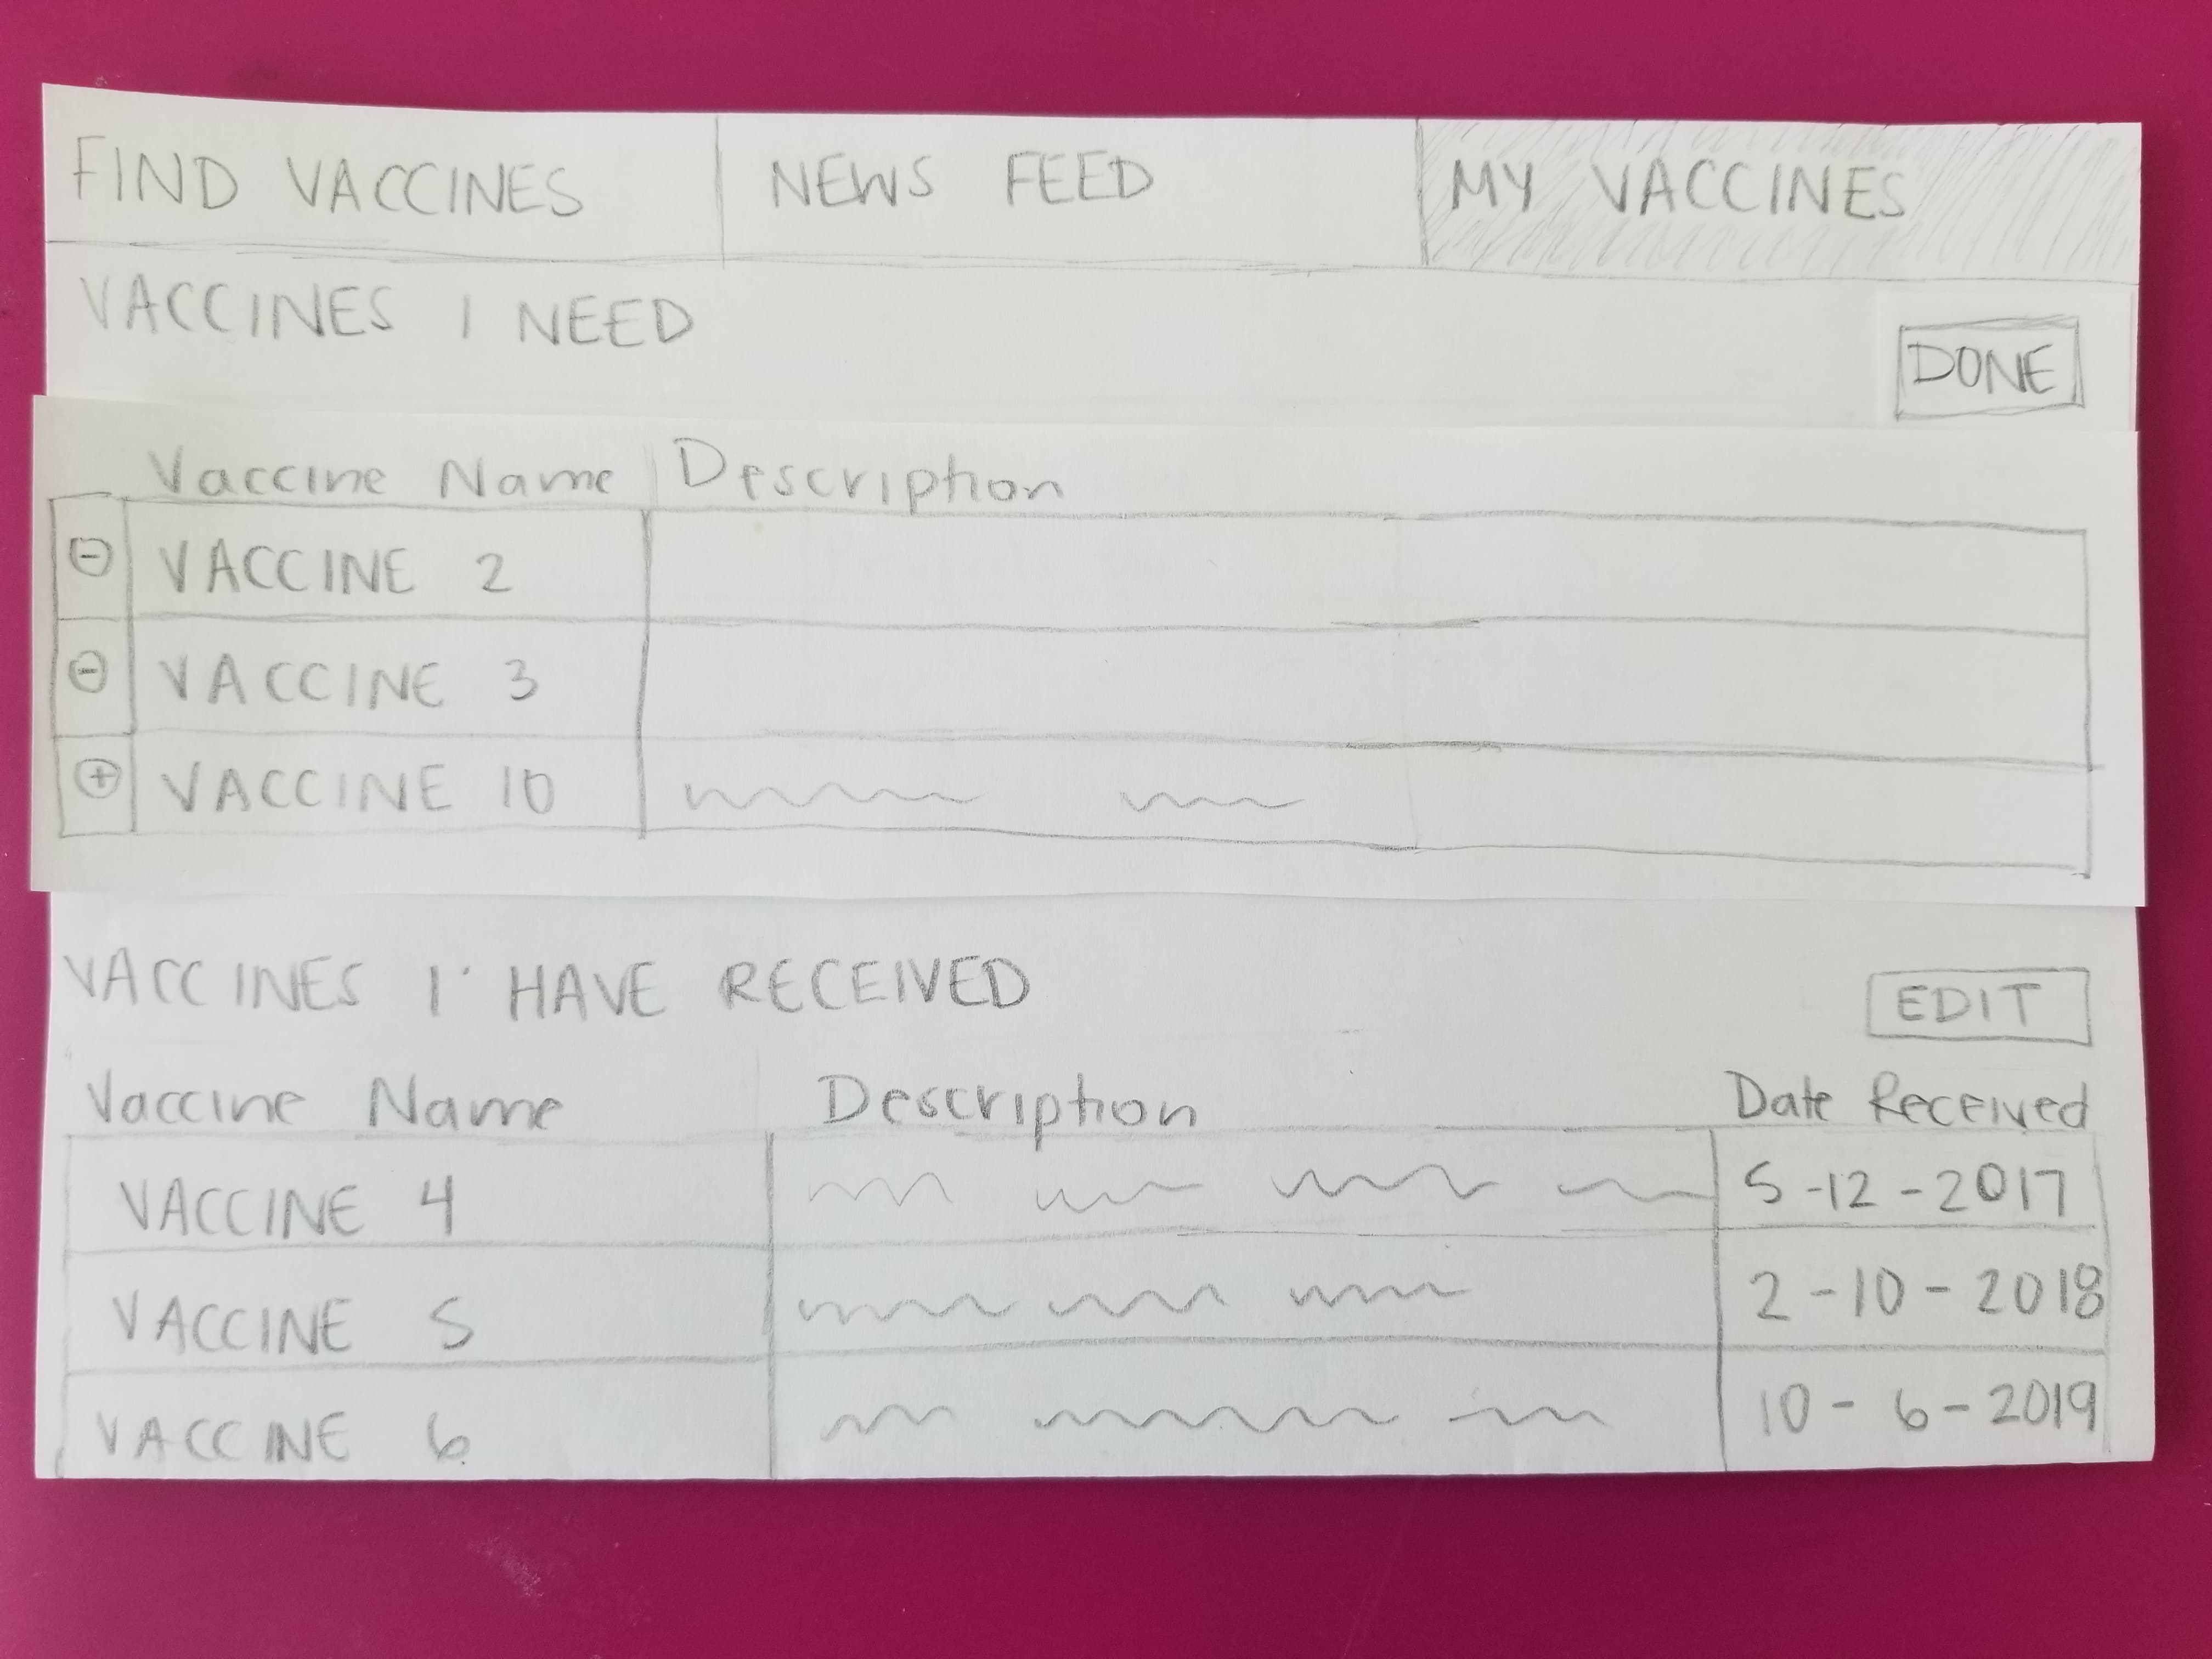 FIND VACCINES NEWS FEED MY VACCINES
VACCINES I NEED
DONE
Vaccine Name Description
⊖ VACCINE 2
⊖ VACCINE 3
⊕ VACCINE 10
VACCINES I HAVE RECEIVED EDIT
Vaccine Name Description Date Received
VACCINE 4 5-12-2017
VACCINE 5 2-10-2018
VACCINE 6 10-6-2019